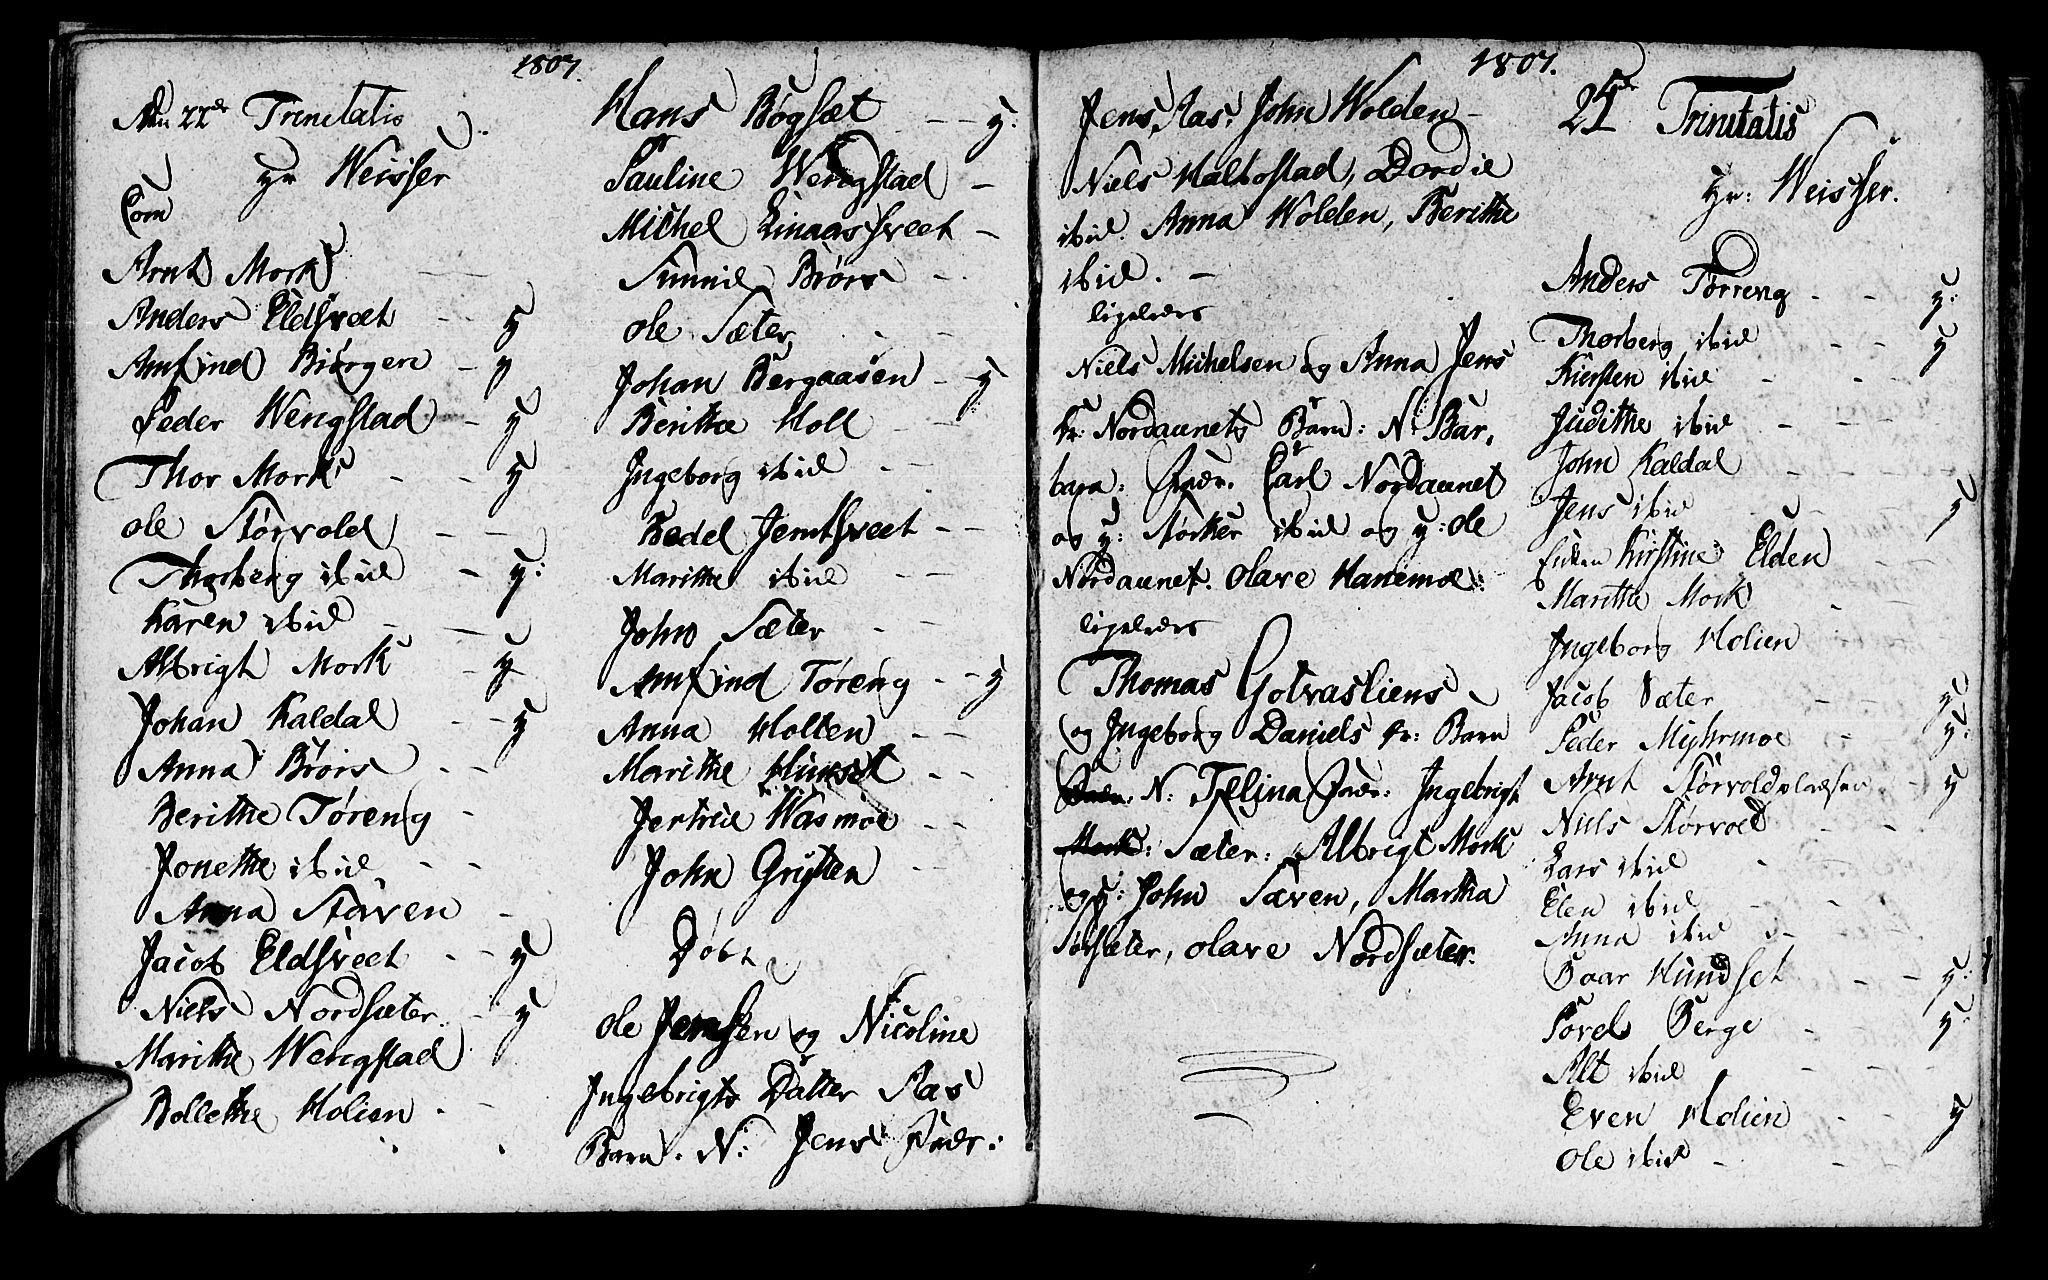 1807.
Dn 22de Trinitatis
Hr Weisser
Com
Arnt Mork - -
Anders Eldsveet - - y
Arnfind Biörgen - y
Peder Wengstad - y
Thor Mork - - y
Ole Størvold - -
Thorberg ibid - y:
Karen ibid - -
Albrigt Mork - y
Johan Kaldal - - y
Anna Brørs - -
Berithe Tøreng -
Jonethe ibid - -
Anna Staven -
Jacob Eldsveet - - y
Niels Nordsæter - y
Marithe Wengstad
Bollethe Holien - -
Hans Bøgset - - y:
Pauline Wengstad -
Michel Linaassveet -
Gunnil Brørs -
Ole Sæter - -
Johan Bergaasen - y
Berithe Holl - -
Ingeborg ibid - -
Bedel Jemtsveet - -
Marithe ibid - -
John Sæter - -
Arnfind Tøreng - - y
Anna Holten - -
Marithe Hunset - -
Jertrue Wasmoe - -
John Grijten - -
Døbt
Ole Jensen og Nicoline
Ingebrigts Datter Aas
Barn. N: Jens Fadr:
1807.
Jens Aas, John Wolden -
Niels Haltostad, Dordie
ibid. Anna Wolden, Berithe
ibid. -
ligeledes
Niels Michelsen og Anna Jens
Fr: Nordaunets Barn: N. Bar,
bara: Fadr. Carl Nordaunet
og y: Størker ibid og y: Ole
Nordaunet. Olave Hanemoe:
ligeledes
Thomas Gotvasliens
og Ingeborg Daniels Fr: Barn
Fadr: N: Telina Fadr: Ingebrigt
Mork: Sæter: Albrigt Mork
og y: John Sæven, Martha
Sørsæter, Olave Nordsæter.
24de Trinitatis
Hr: Weisser.
Anders Tørreng - - y:
Thorberg ibid - - y
Kiersten ibid - - -
Judithe ibid - - -
John Kaldal - - -
Jens ibid - - y
Enken Kirstine Elden
Marithe Mork -
Ingeborg Holien
Jacob Sæter - - y
Peder Myhrmoe - y:
Arnt Størvold - y
Niels Størvold - -
Lars ibid -
Elen ibid - -
Anna ibid - -
Baar Hundset - - y:
Povel Berge - y:
Alt ibid - - -
Even Holien - y
Ole ibid - -